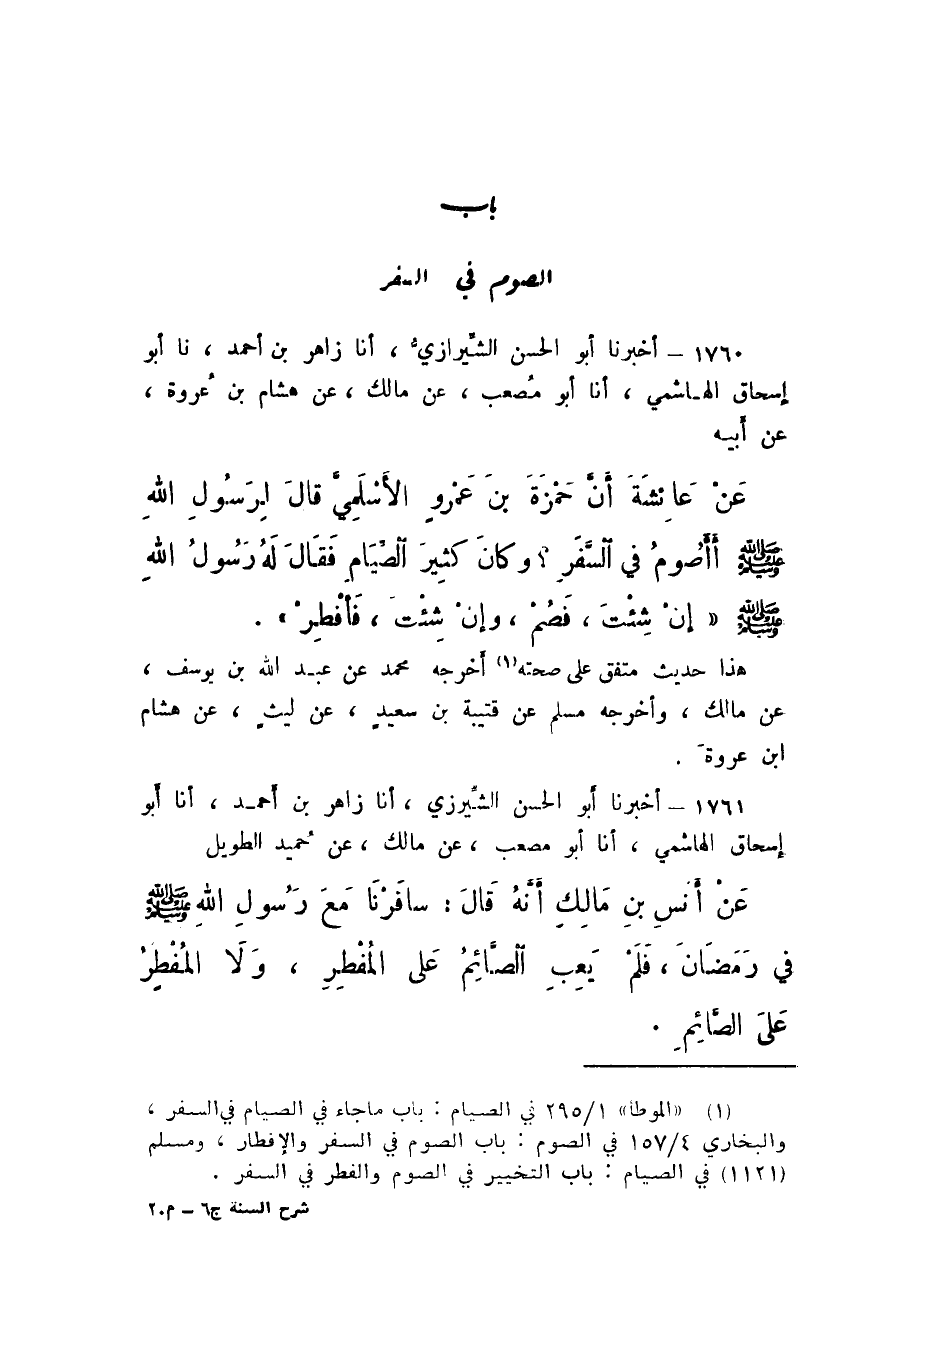 باب
الصوم في السفر
١٧٦٠ – أخبرنا أبو الحسن الشيرازيُّ ، أنا زاهر بن أحمد ، نا أبو
إسحاق الهاشمي ، أنا أبو مُصعب ، عن مالك ، عن هشام بن عُروة ،
عن أبيه
عَنْ عَائِشَةَ أَنَّ حَمْزَةَ بنَ عَمْروٍ الأَسْلَمِيَّ قالَ لِرَسُولِ اللهِ
ﷺ أَأَصُومُ في السَّفَرِ ؟ وكانَ كثِيرَ الصِّيَامِ فَقالَ لَهُ رَسُولُ اللهِ
ﷺ « إنْ شِئْتَ ، فَصُمْ ، وإنْ شِئْتَ ، فَأَفْطِرْ » .
هذا حديث متفق على صحته(١) أخرجه محمد عن عبد الله بن يوسف ،
عن مالك ، وأخرجه مسلم عن قتيبة بن سعيدٍ ، عن ليثٍ ، عن هشام
ابن عروةَ .
١٧٦١ – أخبرنا أبو الحسن الشِّيرزي ، أنا زاهر بن أحمد ، أنا أبو
إسحاق الهاشمي ، أنا أبو مصعب ، عن مالك ، عن حُميد الطويل
عَنْ أَنَسِ بنِ مَالِكٍ أَنَّهُ قَالَ : سافَرْنَا مَعَ رَسُولِ اللهِ ﷺ
في رَمَضَانَ ، فَلَمْ يَعِبِ الصَّائِمُ عَلى المُفْطِرِ ، وَلَا المُفْطِرُ
عَلَى الصَّائِمِ .
(١) «الموطأ» ٢٩٥/١ في الصيام : باب ماجاء في الصيام في السفر ،
والبخاري ١٥٧/٤ في الصوم : باب الصوم في السفر والإفطار ، ومسلم
(١١٢١) في الصيام : باب التخيير في الصوم والفطر في السفر .
شرح السنة ج٦ – م٢٠